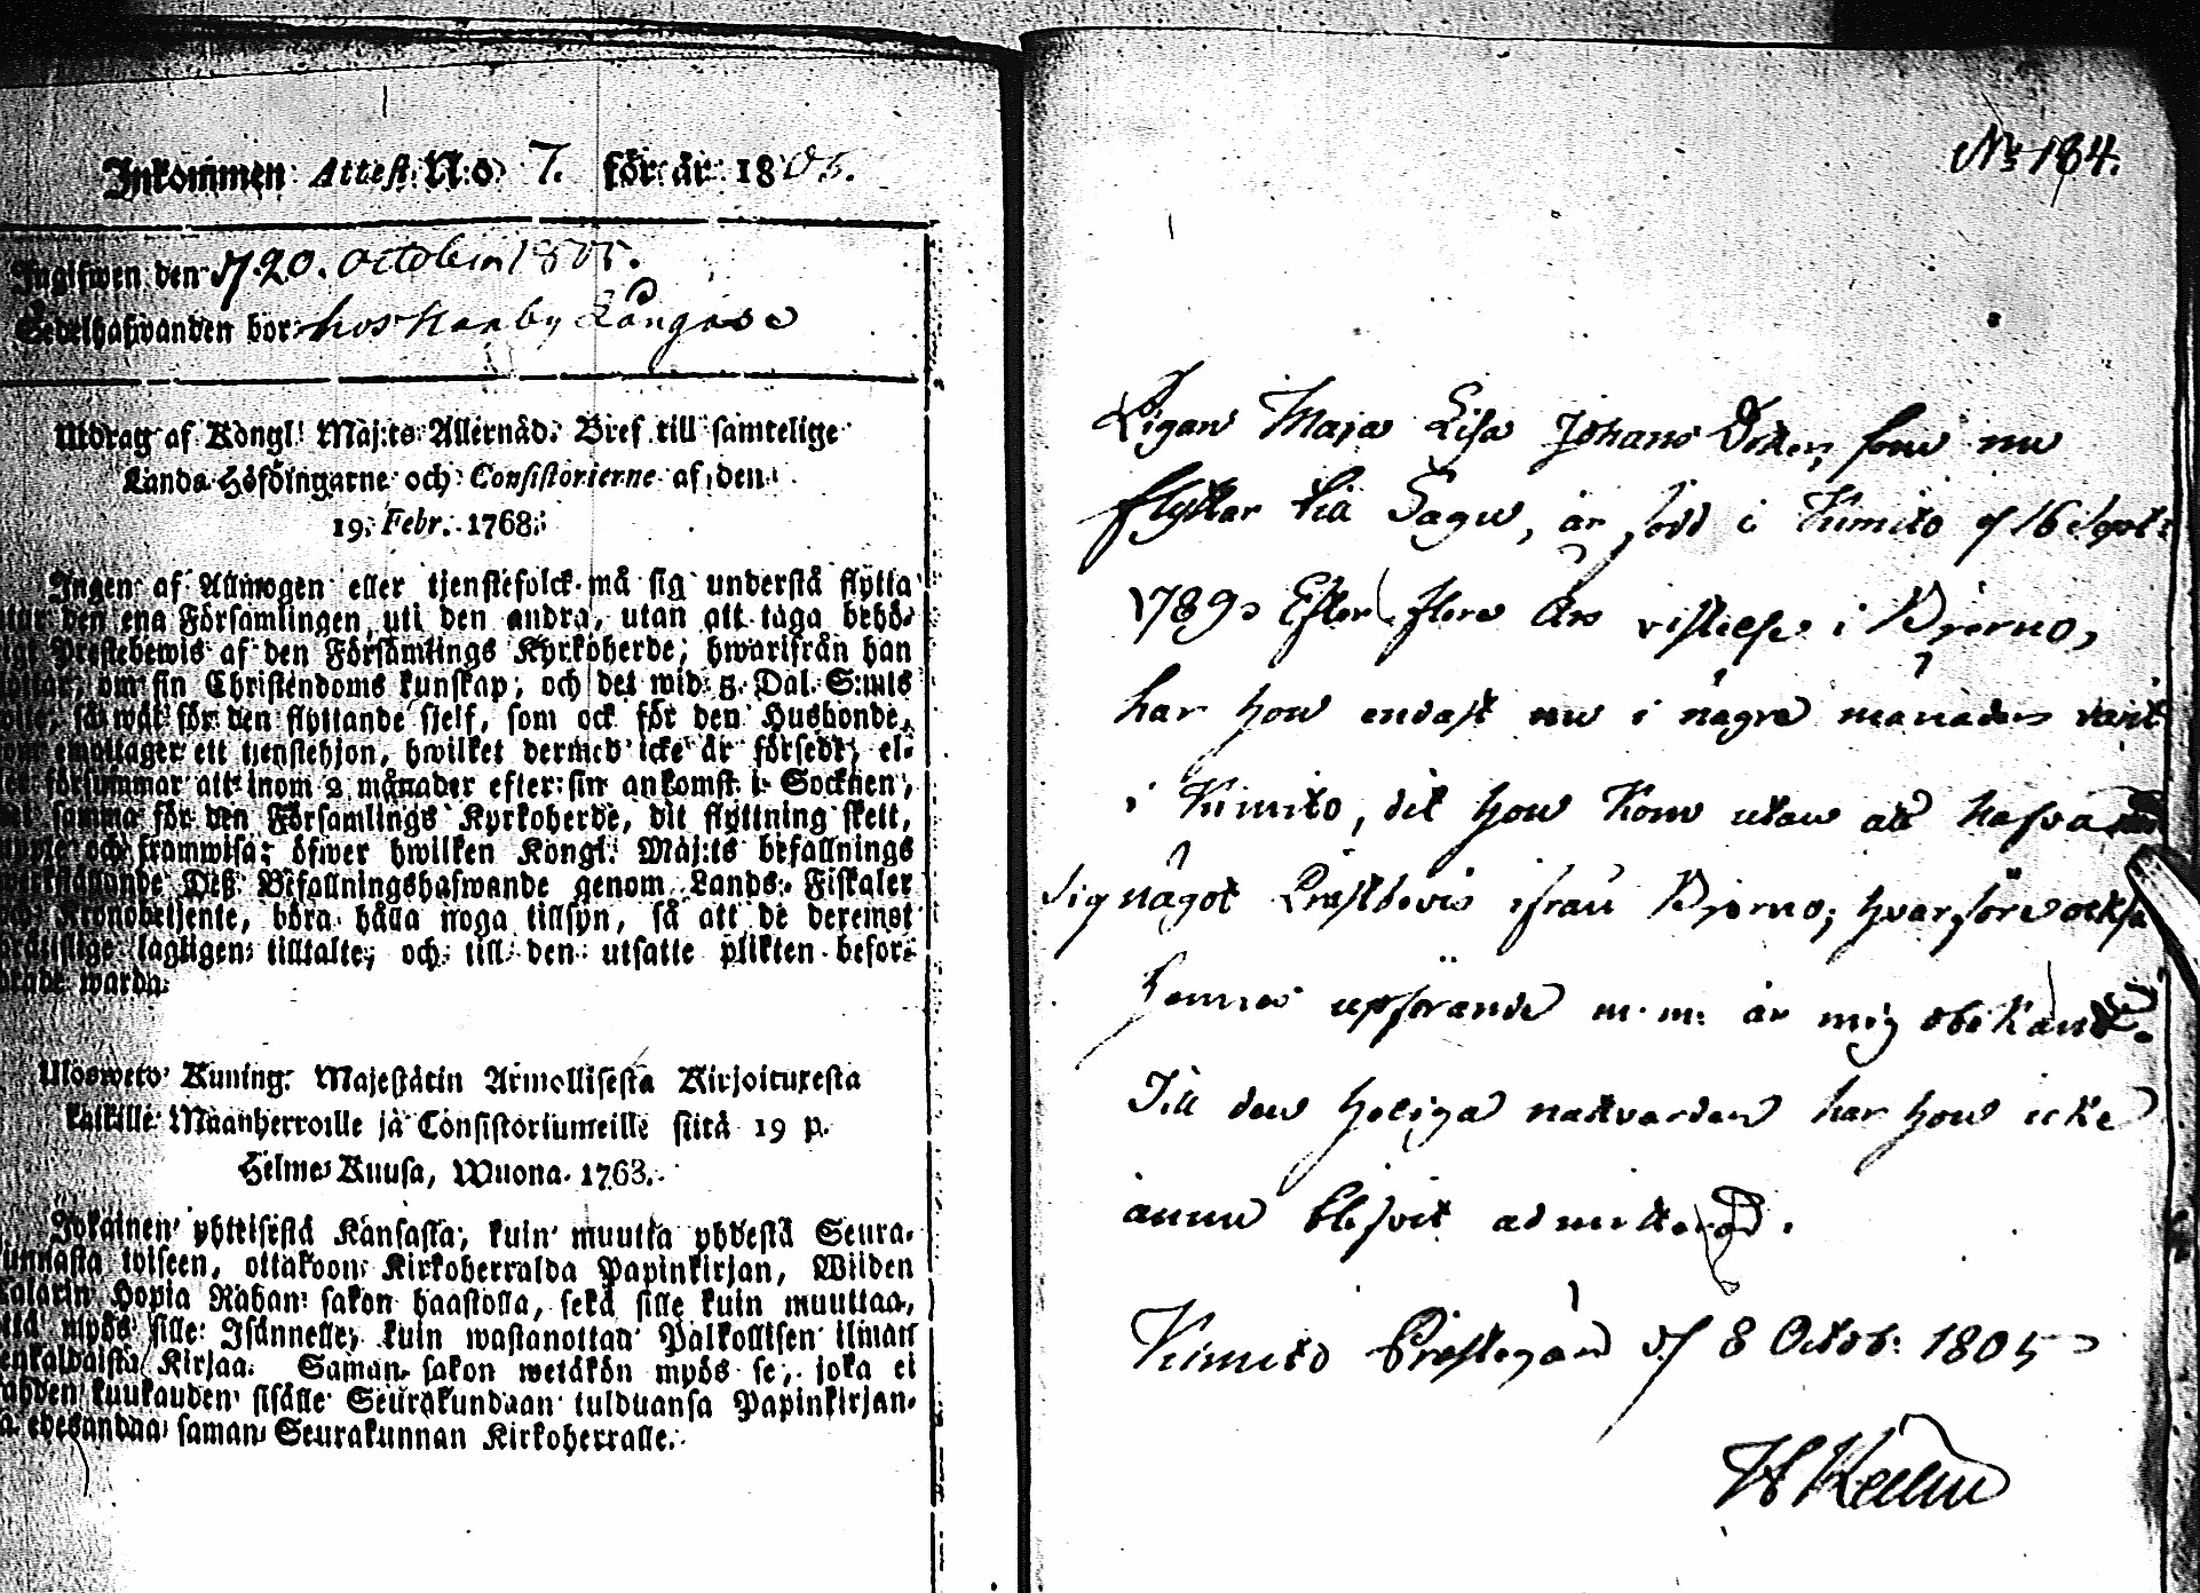 Inkommen Attest N:o 7. för år 1805.
Ingifwen den 20. October 1805.
Sedelhafwanden bor: hos
Utdrag af Kongl. Maj:ts Allernåd. Bref till samtelige
Lands-Höfdingarne och Consistorierne af den
19. Febr. 1768.
Ingen af Allmogen eller tjenstefolck må sig understå flytta
den ena Församlingen uti den andra, utan att taga behö-
Prestebewis af den Församlings Kyrkoherde, hwarifrån han
om sin Christendoms kunskap, och det wid 5 Dal. S:mts
så wäl för den flyttande sjelf, som ock för den Husbonde,
emottager ett tjenstehjon, hwilket dermed icke är försedt, el-
försummar att inom 2 månader efter sin ankomst i Socknen,
samma för den Församlings Kyrkoherde, dit flyttning skett,
och framwisa; öfwer hwilken Kongl. Maj:ts befallnings
Deß Befallningshafwande genom Lands-Fiskaler
Kronobetjente, böra hålla noga tillsyn, så att de deremot
lagligen tilltalte, och till den utsatte plikten befor-
drade warda.
Ulosweto Kuning. Majestätin Armollisesta Kirjoituxesta
kaikille Maanherroille ja Consistoriumeille siitä 19 p.
Helme-Kuusa, Wuona 1763.
Jokainen yhteisestä Kansasta, kuin muutta yhdestä Seura-
kunnasta toiseen, ottakoon Kirkoherralda Papinkirjan, Wiiden
Talarin Hopia Rahan sakon haastolla, sekä sille kuin muuttaa,
että myös sille Isännelle, kuin wastanottaa Palkollisen ilman
senkaldaista Kirjaa. Saman sakon wetäkön myös se, joka ei
kahden kuukauden sisälle Seurakundaan tulduansa Papinkirjan-
sa edesandaa saman Seurakunnan Kirkoherralle.
No 184.
Pigan Maja Lisa Johans Dotter, som nu
flyttar till Sagu, är född i Kimito d 16 Sept:
1789. Efter flere års vistelse i Bjerno,
har hon endast nu i någre månader varit
i Kimito, dit hon kom utan att hafva
sig något Prestbevis ifrån Bjerno; hvarföre också
hennes upförande m.m. är mig obekant.
Till den heliga nattvarden har hon icke
ännu blifvit admitterad.
Kimito Prestegård d 8 Octob: 1805